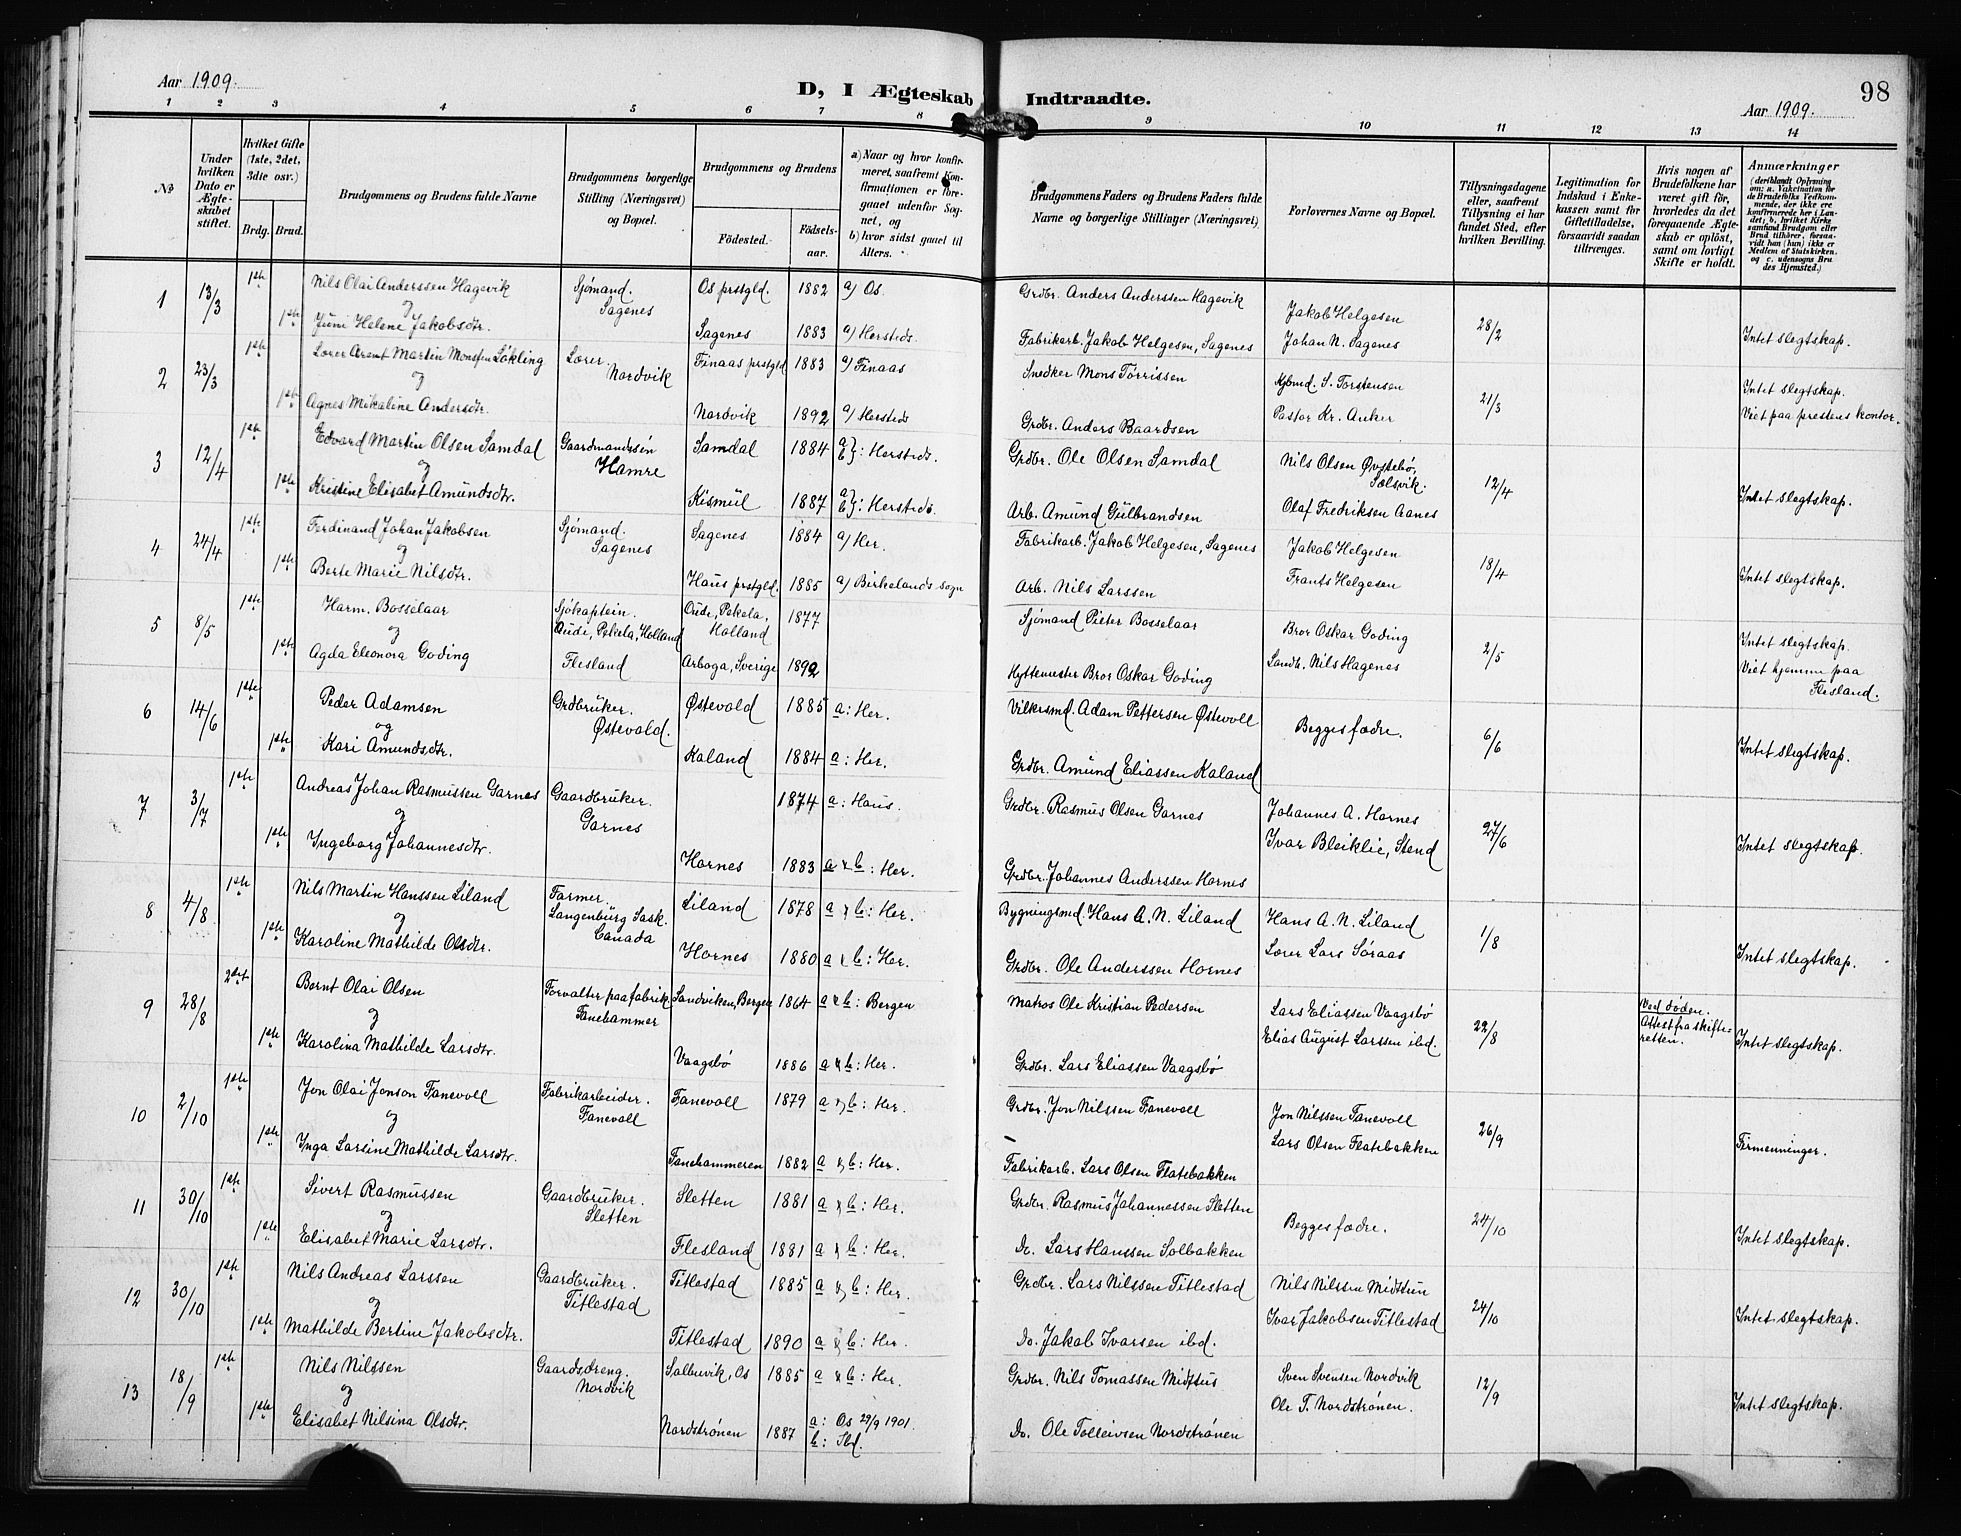 Aar 1909.
D, I Ægteskab Indtraadte.
98
Aar 1909.
1 2 3 4 5 6 7 8 9 10 11 12 13 14
No
Under hvilken Dato er Ægteskabet stiftet.
Hvilket Gifte (1ste, 2det, 3die osv.)
Brdg. Brud.
Brudgommens og Brudens fulde Navne
Brudgommens borgerlige Stilling (Næringsvei) og Bopæl.
Brudgommens og Brudens
Fødested.
Fødselsaar.
a) Naar og hvor konfirmeret, saafremt Konfirmationen er foregaaet udenfor Sognet, og
b) hvor sidst gaaet til Alters.
Brudgommens Faders og Brudens Faders fulde Navne og borgerlige Stillinger (Næringsvei)
Forlovernes Navne og Bopæl.
Tillysningsdagene eller, saafremt Tillysning ei har fundet Sted, efter hvilken Bevilling.
Legitimation for Indskud i Enkekassen samt for Giftetilladelse, forsaavidt saadan tiltrænges.
Hvis nogen af Brudefolkene har været gift før, hvorledes da det foregaaende Ægteskab er opløst, samt om lovligt Skifte er holdt.
Anmærkninger
(deriblandt Oplysning om: a. Vakcination for de Brudefolks Vedkommende, der ikke ere konfirmerede her i Landet; b, hvilket Kirkesamfund Brudgom eller Brud tilhører, forsaavidt han (hun) ikke er Medlem af Statskirken, og c. udensogns Brudes Hjemsted.)
1 13/3 1ste Nils Olai Anderssen Hagevik Sjømand. Sagenes Os prstgld. 1882 a) Os. Grdbr. Anders Anderssen Hagevik Jakob Helgesen 28/2
og
1ste Juni Helene Jakobsdtr. Sagenes 1883 a) Hersteds. Fabrikarb. Jakob Helgesen, Sagenes Johan N. Sagenes Intet slegtskap.
2 23/3 1ste Lærer Arent Martin Monssen Løkling Lærer Nordvik Finaas prstgld 1883 a) Finaas Snedker Mons Tørrissen Kjbmd. S. Torstensen 21/3 Intet slegtskap.
og
1ste Agnes Mikaline Andersdtr. Nordvik 1892 a) Hersteds Grdbr. Anders Baardsen Pastor Kr. Anker Viet paa prestens kontor.
3 12/4 1ste Edvard Martin Olsen Samdal Gaardmandssøn Hamre Samdal 1884 a) b): Hersteds. Grdbr. Ole Olsen Samdal Nils Olsen Øvstebø, Sælsvik. 12/4
og
1ste Kristine Elisabet Amundsdtr. Kismul 1887 a) b): Hersteds. Arb. Amund Gulbrandsen Olaf Fredriksen Aanes Intet slegtskap.
4 24/4 1ste Ferdinand Johan Jakobsen Sjømand. Sagenes Sagenes 1884 a) Her. Fabrikarb. Jakob Helgesen, Sagenes Jakob Helgesen 18/4
og
1ste Berte Marie Nilsdtr. Haus prstgld. 1885 a) Birkelands sogn Arb. Nils Larssen Frants Helgesen Intet slegtskap.
5 8/5 1ste Harm. Bosselaar Sjøkaptein. Oude, Pekela, Holland Oude, Pekela, Holland 1877 Sjømand Pieter Bosselaar Bror Oskar Goding 2/5 Intet slegtskap.
og
1ste Agda Eleonora Goding Flesland Arboga, Sverige 1892 Hyttemester Bror Oskar Goding Landh. Nils Hagenes Viet hjemme paa Flesland.
6 14/6 1ste Peder Adamsen Grdbruker. Østevold. Østevold 1885 a: Her. Vilkersmd. Adam Pettersen Østevoll Begges fædre. 6/6
og
1ste Kari Amundsdtr. Kaland 1884 a: Her. Grdbr. Amund Eliassen Kaland Intet slegtskap.
7 3/7 1ste Andreas Johan Rasmussen Garnes Gaardbruker. Garnes 1874 a: Haus. Grdbr. Rasmus Olsen Garnes Johannes A. Hornes 27/6
og
1ste Ingeborg Johannesdtr. Hornes 1883 a & b: Her. Grdbr. Johannes Anderssen Hornes Ivar Bleiklie, Stend Intet slegtskap.
8 4/8 1ste Nils Martin Hanssen Liland Farmer. Langenburg Sask. Canada Liland 1878 a & b: Her. Bygningsmd. Hans A. N. Liland Hans A. N. Liland 1/8
og
1ste Karoline Mathilde Olsdtr. Hornes 1880 a & b: Her. Grdbr. Ole Anderssen Hornes Lærer Lars Søraas Intet slegtskap.
9 28/8 2det Bernt Olai Olsen Forvalter paa fabrik Fanehammer Sandviken, Bergen 1864 a & b: Bergen Matros Ole Kristian Pedersen Lars Eliassen Vaagsbø 22/8 Ved døden. Attest fra skifteretten.
og
1ste Karolina Mathilde Larsdtr. Vaagsbø 1886 a & b: Her. Grdbr. Lars Eliassen Vaagsbø Elias August Larssen ibd. Intet slegtskap.
10 2/10 1ste Jon Olai Jonson Fanevoll Fabrikarbeider. Fanevoll Fanevoll 1879 a & b: Her. Grdbr. Jon Nilssen Fanevoll Jon Nilssen Fanevoll 26/9
og
1ste Inga Larsine Mathilde Larsdtr. Fanehammeren 1882 a & b: Her. Fabrikarb. Lars Olsen Flatebakken Lars Olsen Flatebakken Firmenninger.
11 30/10 1ste Sivert Rasmussen Gaardbruker. Sletten Sletten 1881 a & b: Her. Grdbr. Rasmus Johannessen Sletten Begges fædre. 24/10
og
1ste Elisabet Marie Larsdtr. Flesland 1881 a & b: Her. Do. Lars Hanssen Solbakken Intet slegtskap.
12 30/10 1ste Nils Andreas Larssen Gaardbruker. Titlestad Titlestad 1885 a & b: Her. Grdbr. Lars Nilssen Titlestad Nils Nilssen Midttun 24/10
og
1ste Mathilde Bertine Jakobsdtr. Titlestad 1890 a & b: Her. Do. Jakob Ivarsen ibd. Ivar Jakobsen Titlestad Intet slegtskap.
13 18/9 1ste Nils Nilssen Gaardsdreng. Nordvik Solbuvik, Os 1885 a & b: Her. Grdbr. Nils Tomassen Midttus Sven Svensen Nordvik 12/9
og
1ste Elisabet Nilsina Olsdtr. Nordstrønen 1887 a: Os 29/9 1901. b: Ibd. Do. Ole Tolleivsen Nordstrønen Ole T. Nordstrønen. Intet slegtskap.